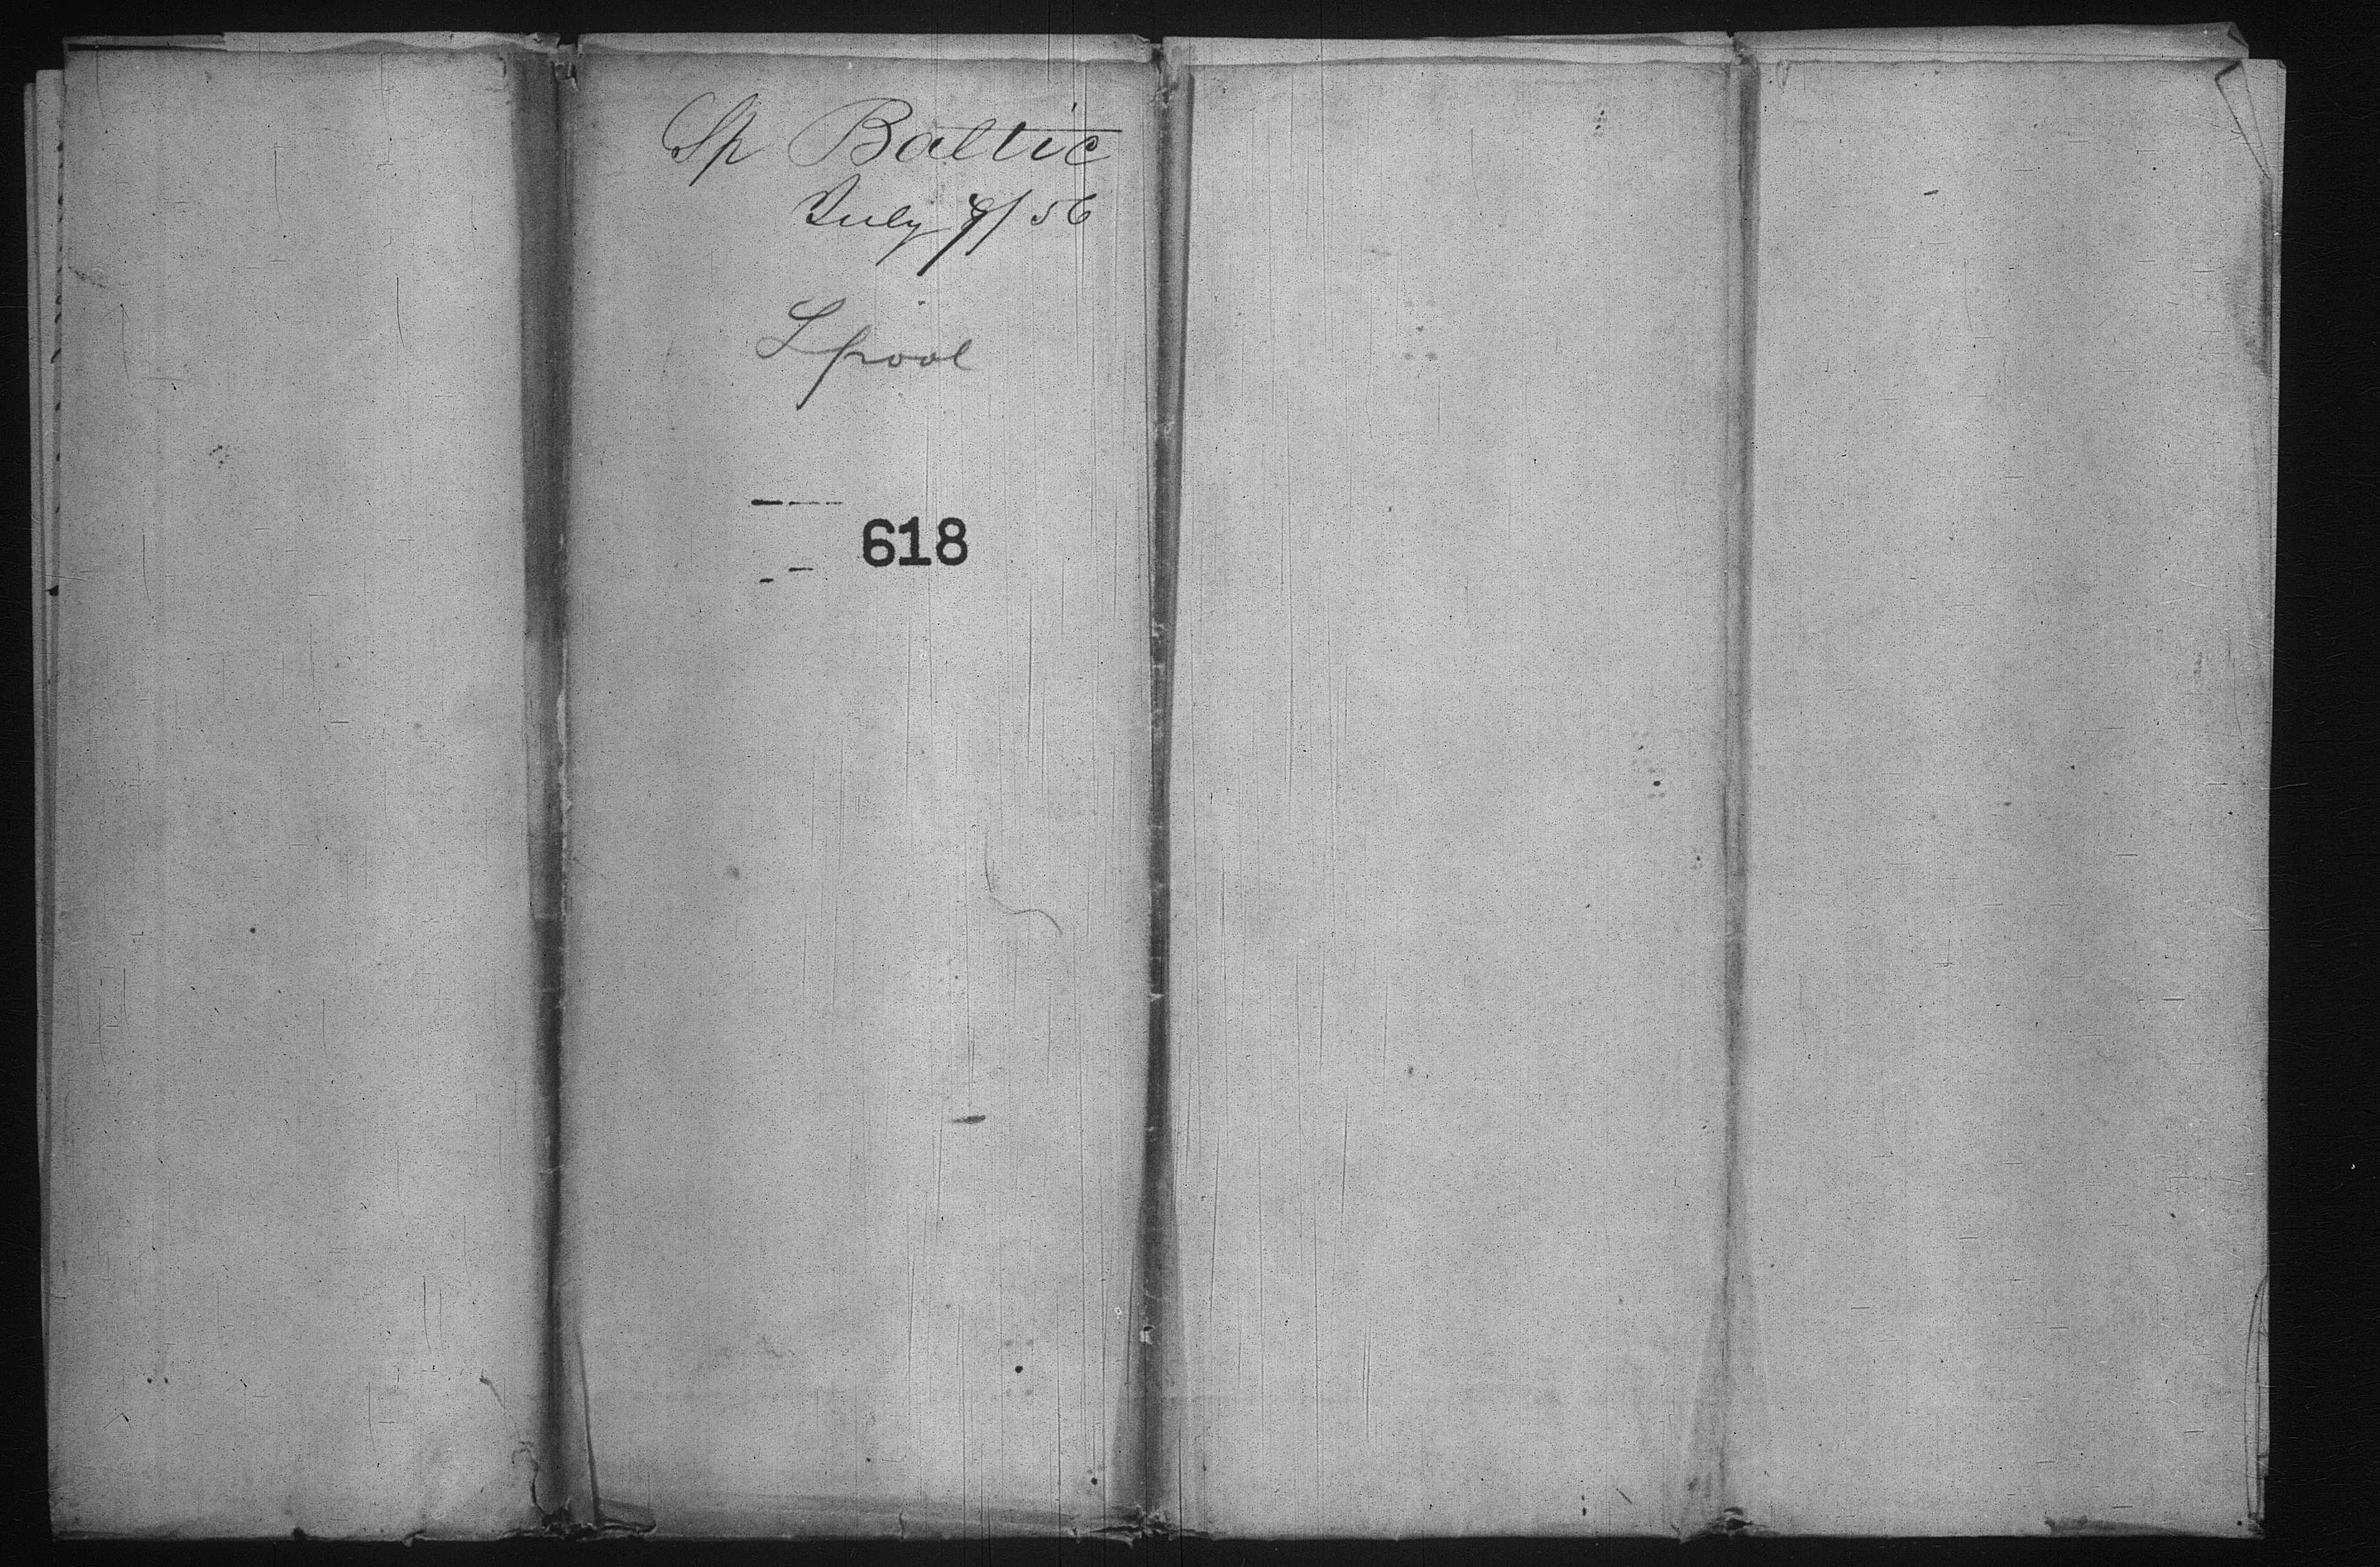 Sp Baltic
July 9/56
Lpool
618